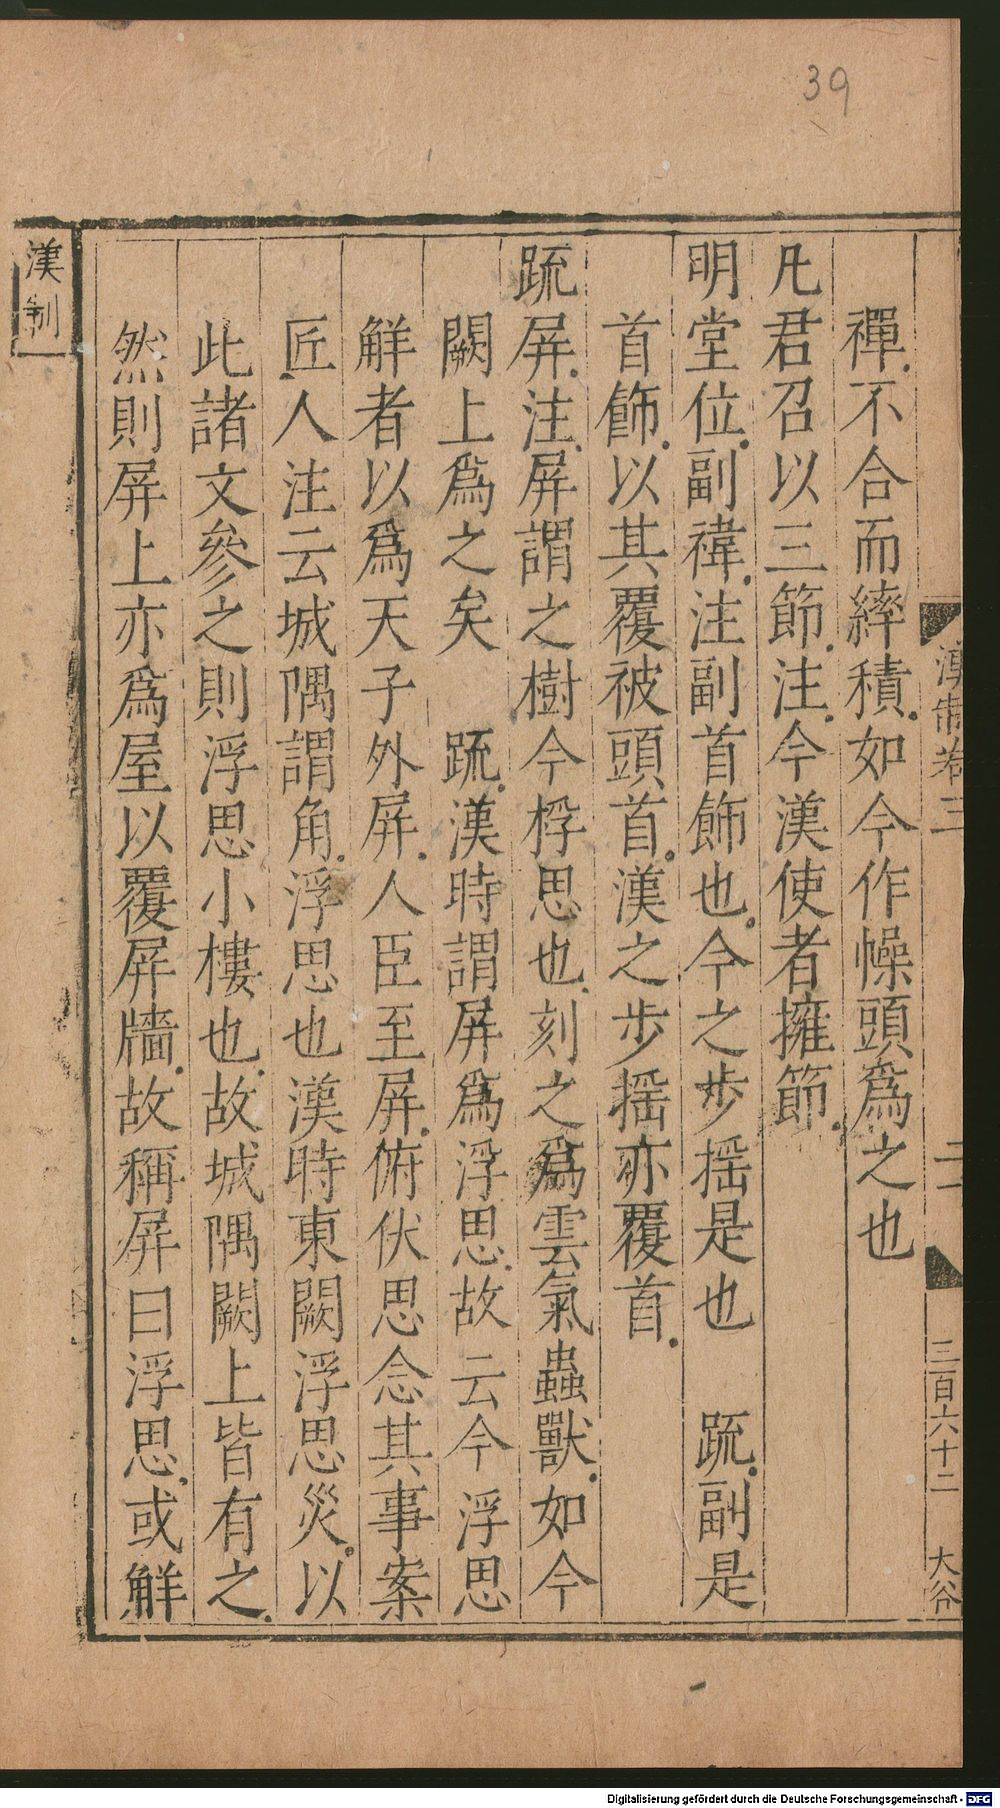 39
禪不合而繂積如今作幧頭爲之也
凡君召以三節注今漢使者擁節
明堂位副褘注副首飾也今之步摇是也　䟽副是
首飾以其覆被頭首漢之步摇亦覆首
䟽屏注屏謂之樹今桴思也刻之爲雲氣蟲獸如今
闕上爲之矣　䟽漢時謂屏爲浮思故云今浮思
觧者以爲天子外屏人臣至屏俯伏思念其事案
匠人注云城隅謂角浮思也漢時東闕浮思災以
此諸文參之則浮思小樓也故城隅闕上皆有之
然則屏上亦爲屋以覆屏牆故稱屏曰浮思或觧
漢制
漢制卷三
二
三百六十二
大谷
Digitalisierung gefördert durch die Deutsche Forschungsgemeinschaft - DFG